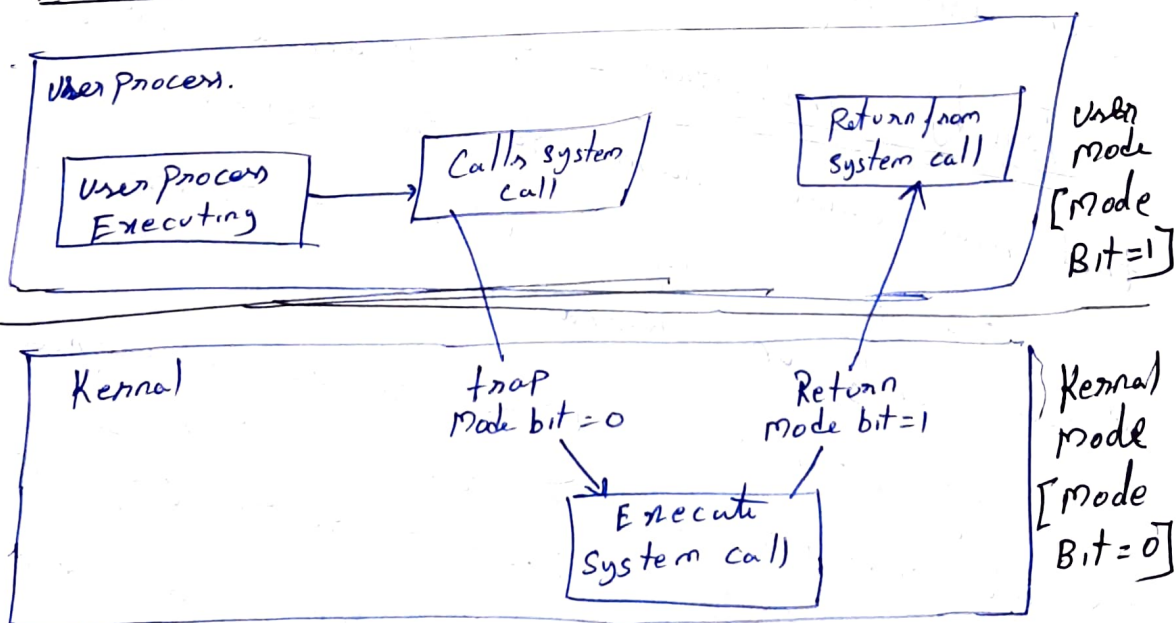 User Process.
User Process
Executing
Calls system
call
Return from
system call
User
mode
[Mode
Bit=1]
Kernal
trap
Mode bit = 0
Return
mode bit=1
Execute
System call
Kernal
mode
[Mode
Bit=0]